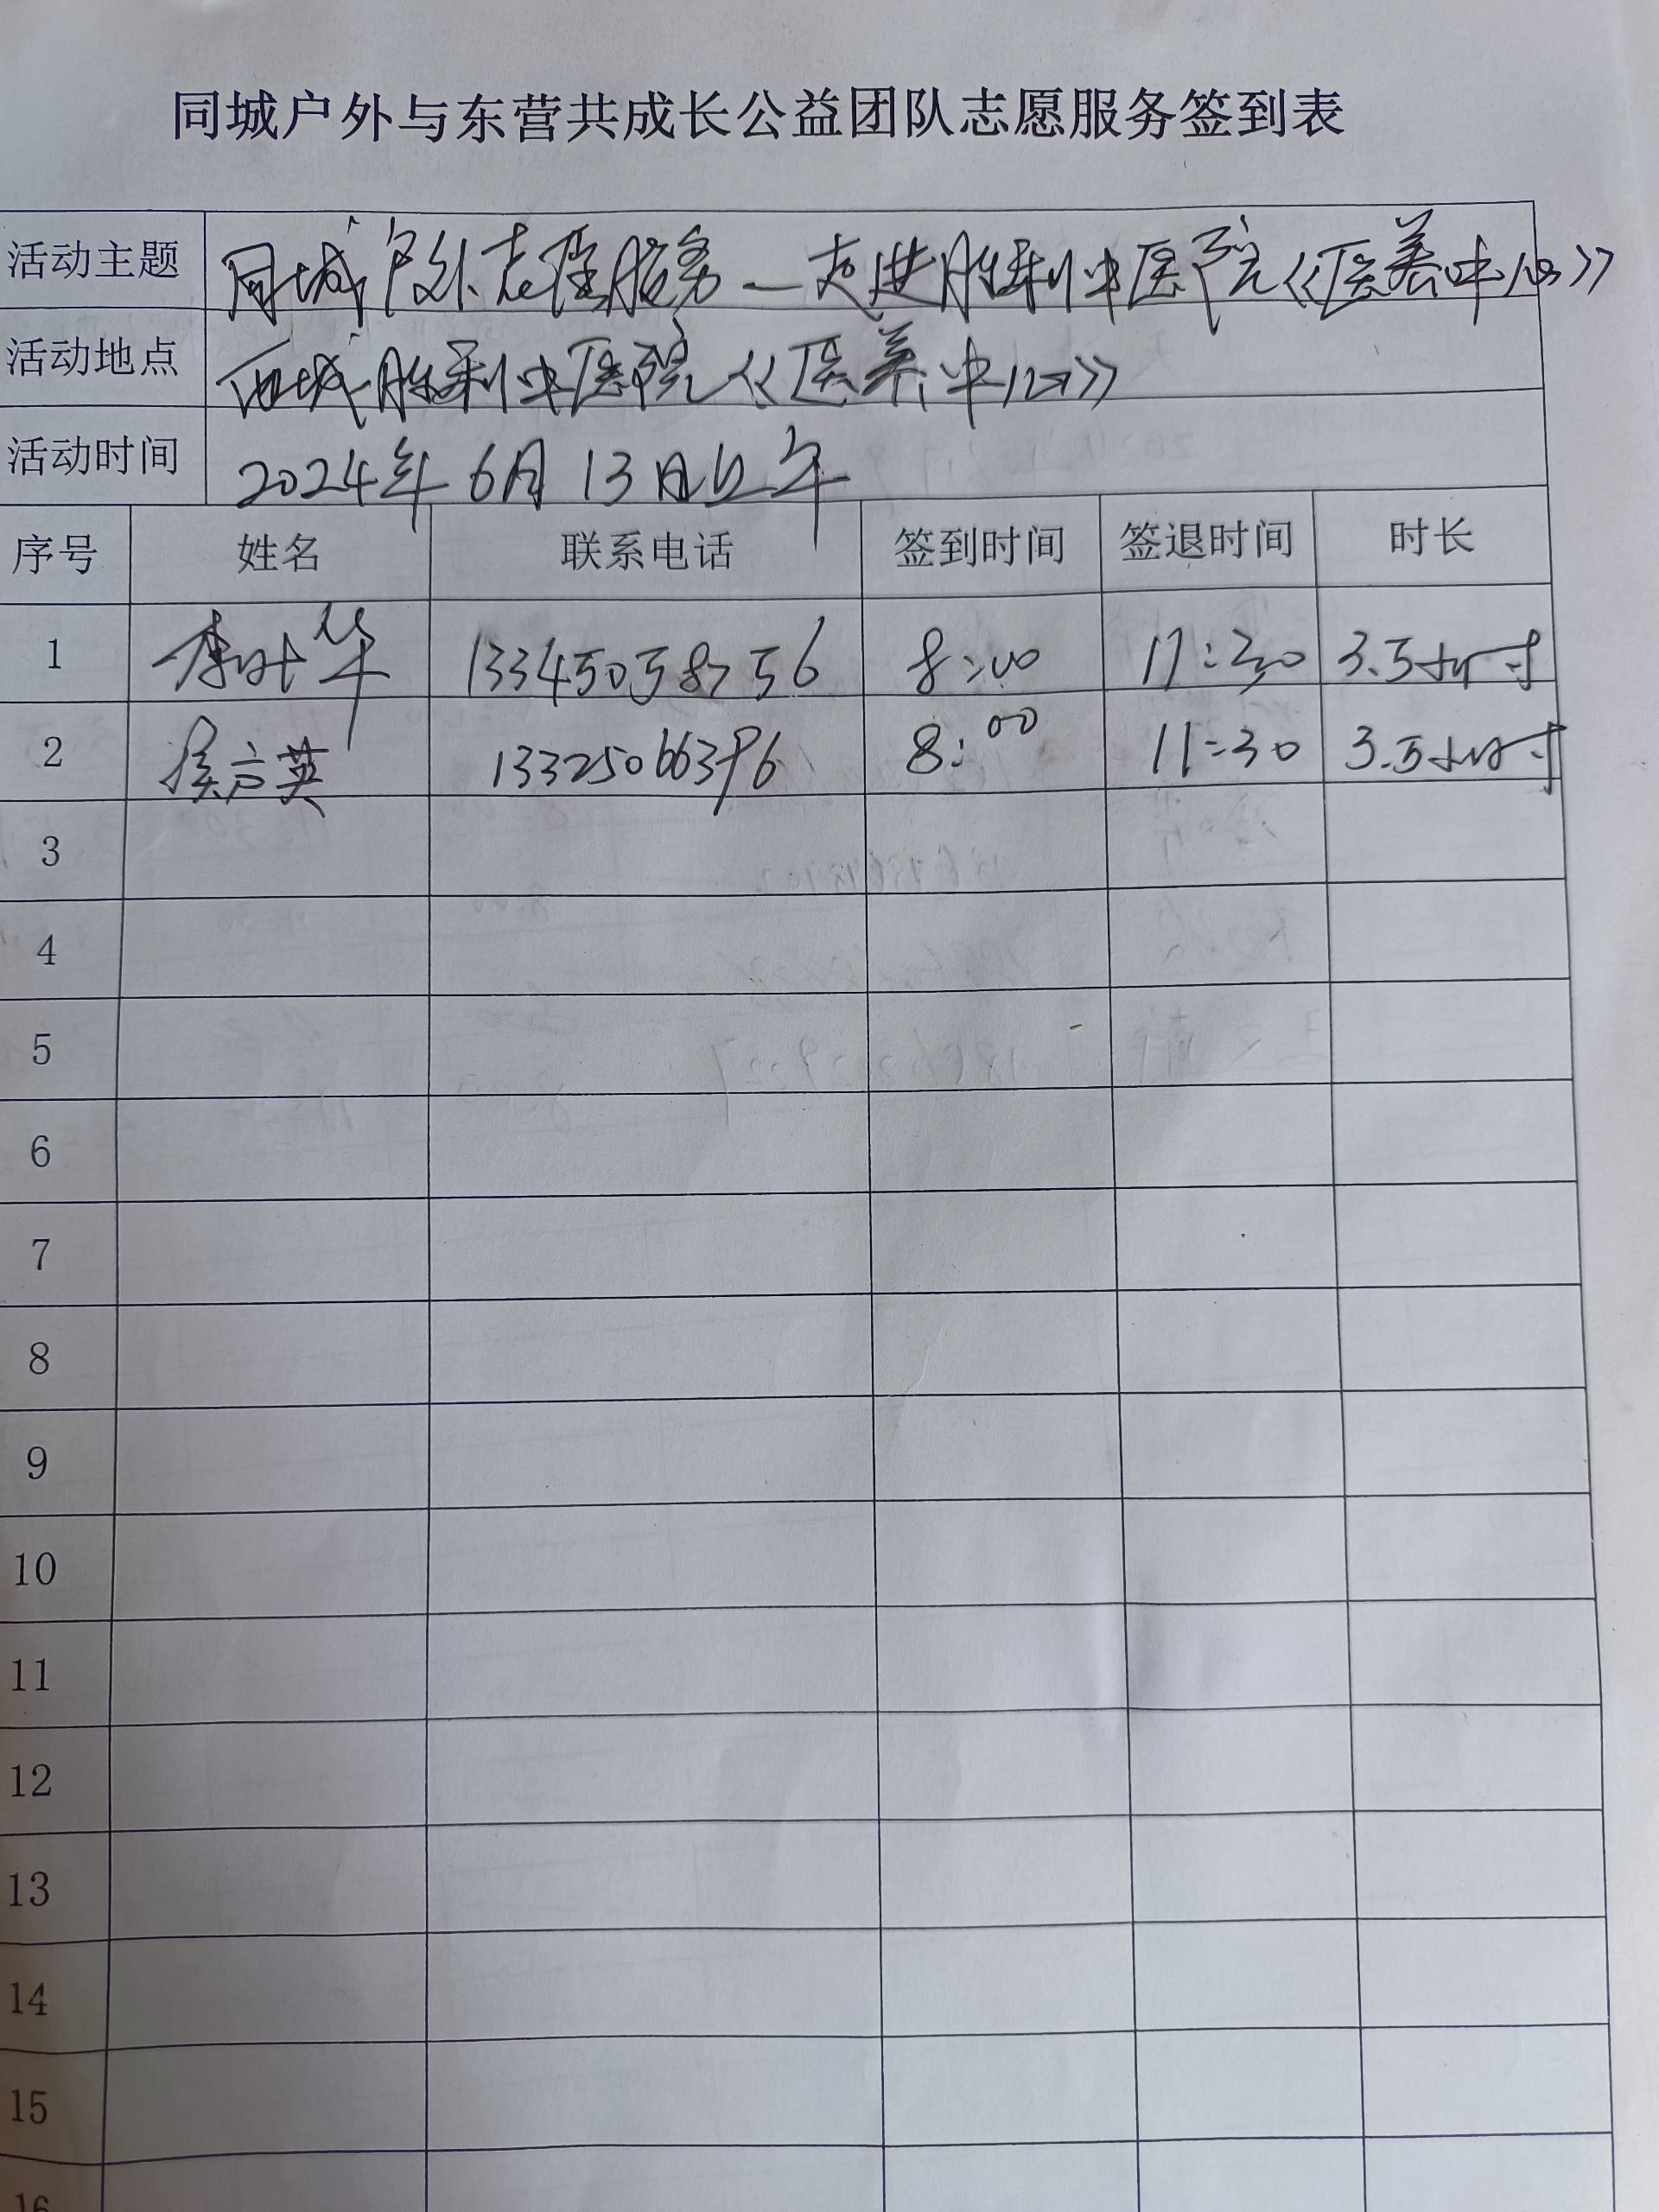 同城户外与东营共成长公益团队志愿服务签到表
活动主题 同城户外志愿服务—走进胜利中医院《医养中心》
活动地点 西城胜利中医院《医养中心》
活动时间 2024年6月13日上午
序号 姓名 联系电话 签到时间 签退时间 时长
1 华 8:00 11:30 3.5小时
2 英 13325066396 8:00 11:30 3.5小时
3
4
5
6
7
8
9
10
11
12
13
14
15
16